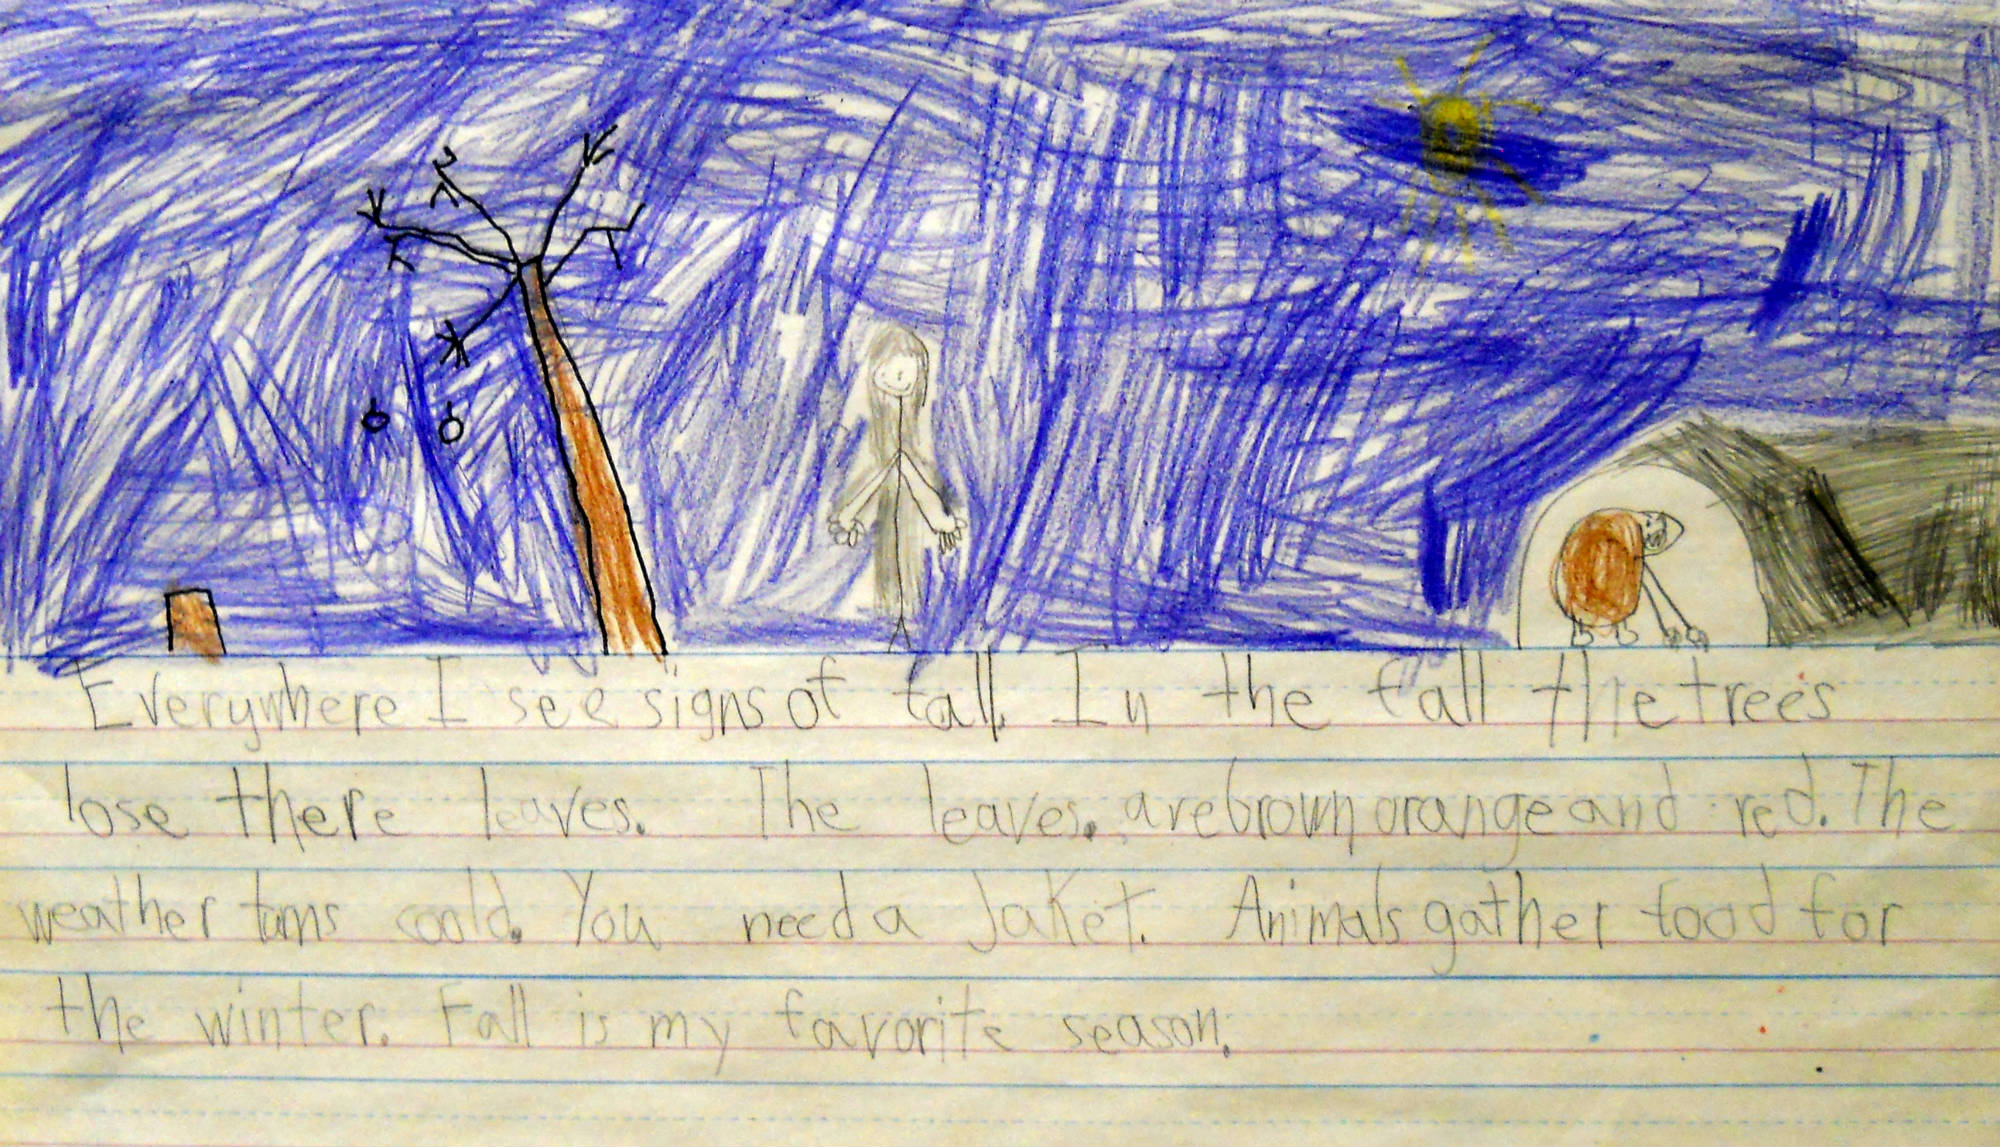 Everywhere I see signs of fall. In the fall the trees
lose there leaves. The leaves. are brown orange and red. The
weather turns coold. You need a Jaket. Animals gather food for
the winter. Fall is my favorite season.